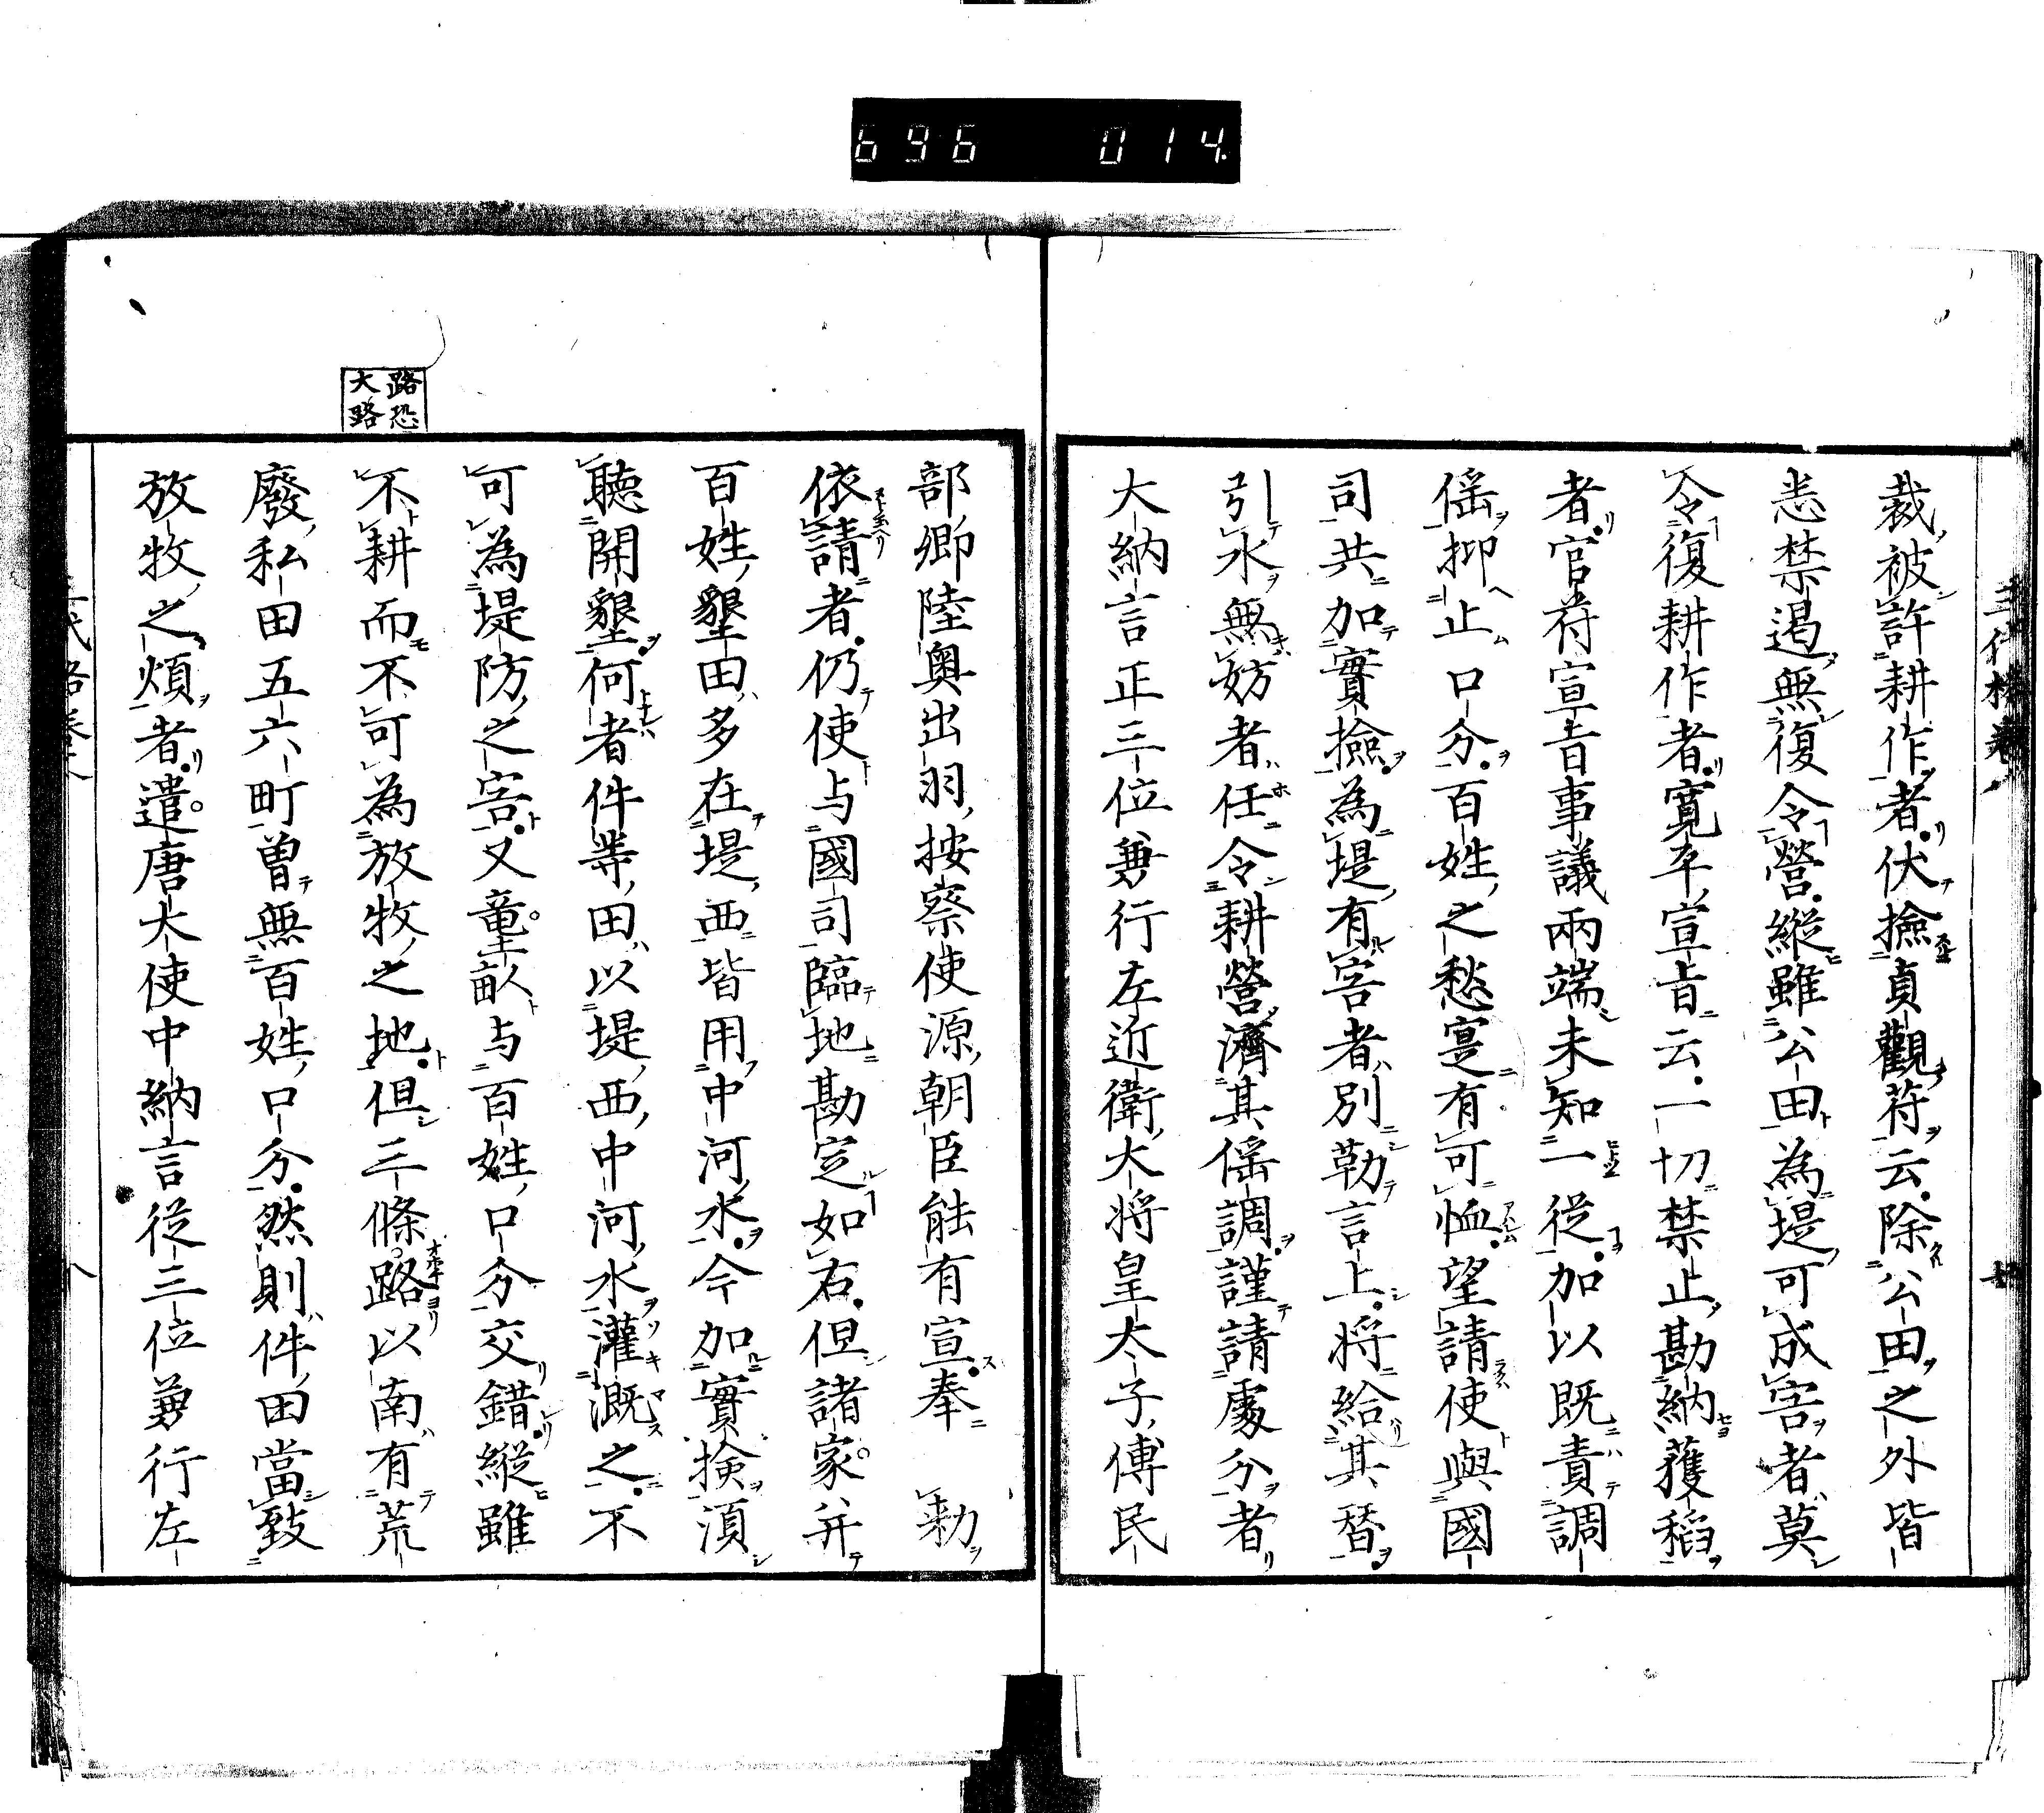 696 014
裁被許耕作者伏撿貞觀苻云除公田之外皆
悉禁遏無復令營縱雖公田為堤可成害者莫
令復耕作者寛平宣旨云一切禁止勘納穫稻
者官苻宣旨事議兩端未知一從加以既責調
徭抑止口分百姓之愁寔有可恤望請使與國
司共加實撿為堤有害者別勒言上将給其替
引水無妨者任令耕營濟其徭調謹請處分者
大納言正三位兼行左近衛大将皇太子傅民
部卿陸奥出羽按察使源朝臣能有宣奉 勅
依請者仍使与國司臨地勘定如右但諸家并
百姓墾田多在堤西皆用中河水今加實撿湏
聽開墾何者件等田以堤西中河水灌溉之不
可為堤防之害又童畝与百姓口分交錯縱雖
不耕而不可為放牧之地但三條路以南有荒
廢私田五六町曽無百姓口分然則件田當致
放牧之煩者遣唐大使中納言従三位兼行左
路恐
大路
八